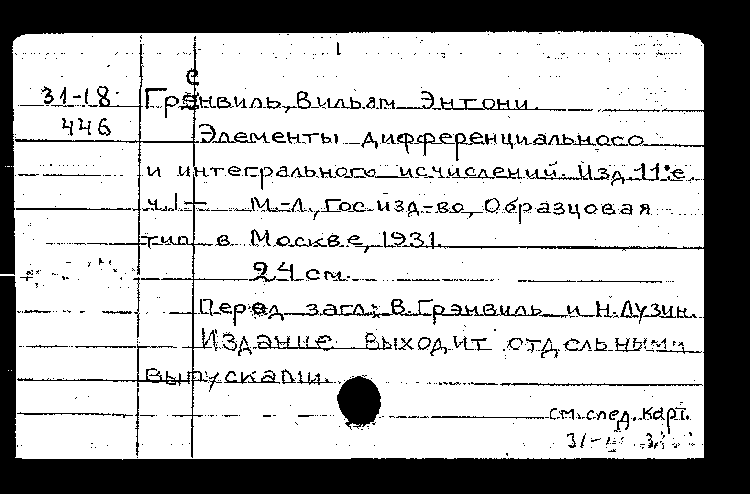 1
е
31-18 Грэнвиль, Вильям Энтони.
446 Элементы дифференциального
и интегрального исчислений. Изд. 11-е.
ч. 1— М.-Л., Гос. изд-во, Образцовая
тип. в Москве, 1931.
24 см.
Перед загл.: В. Грэнвиль и Н. Лузин.
Издание выходит отдельными
выпусками.
см. след. карт.
31-